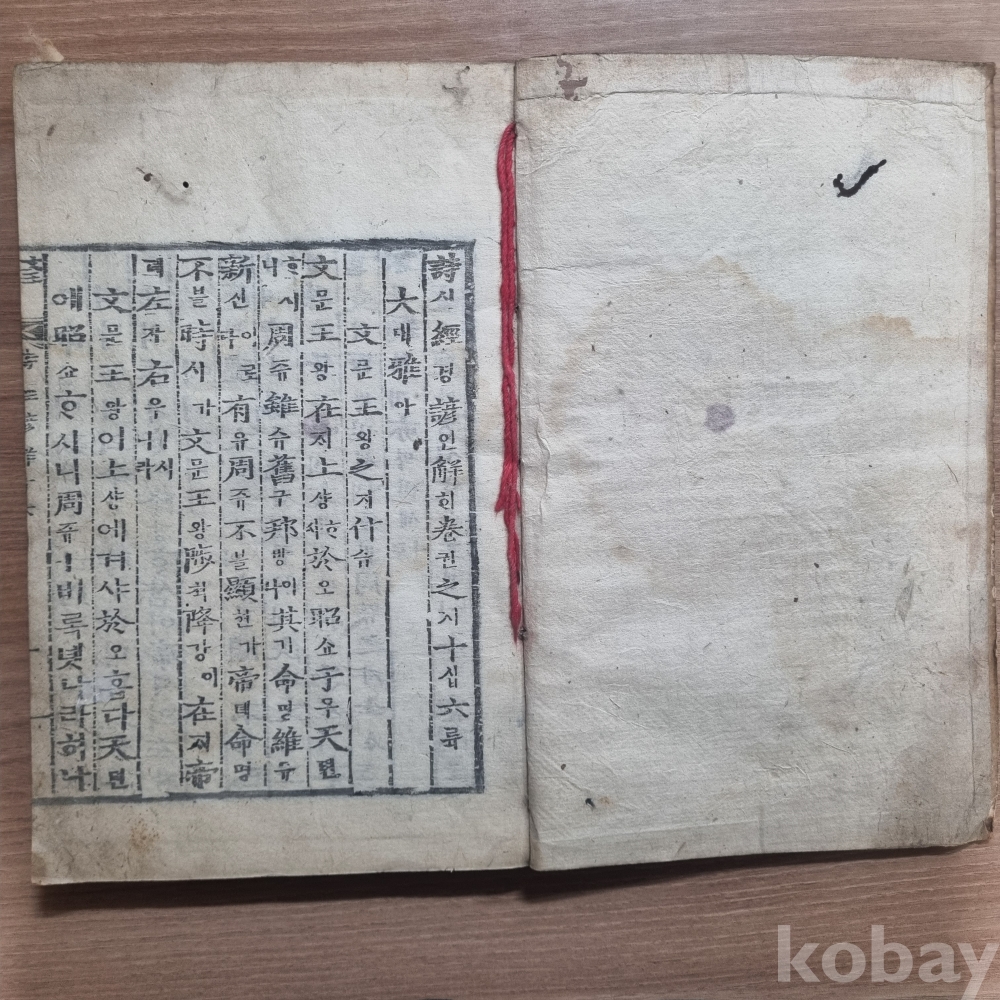 詩시經경諺언解ᄒᆡ卷권之지十십六륙
大대雅아
文문王왕之지什습
文문王왕在ᄌᆡ上샹ᄒᆞ샤於오昭쇼于우天텬
ᄒᆞ시니周쥬雖슈舊구邦방이나其기命명維유
新신이로다有유周쥬不블顯현가帝뎨命명
不블時시가文문王왕陟쳑降강이在ᄌᆡ帝
뎨左자右우ㅣ시니라
文문王왕이上샹에겨샤於오홉다天텬
에昭쇼ᄒᆞ시니周쥬ㅣ비록녯나라히나
kobay